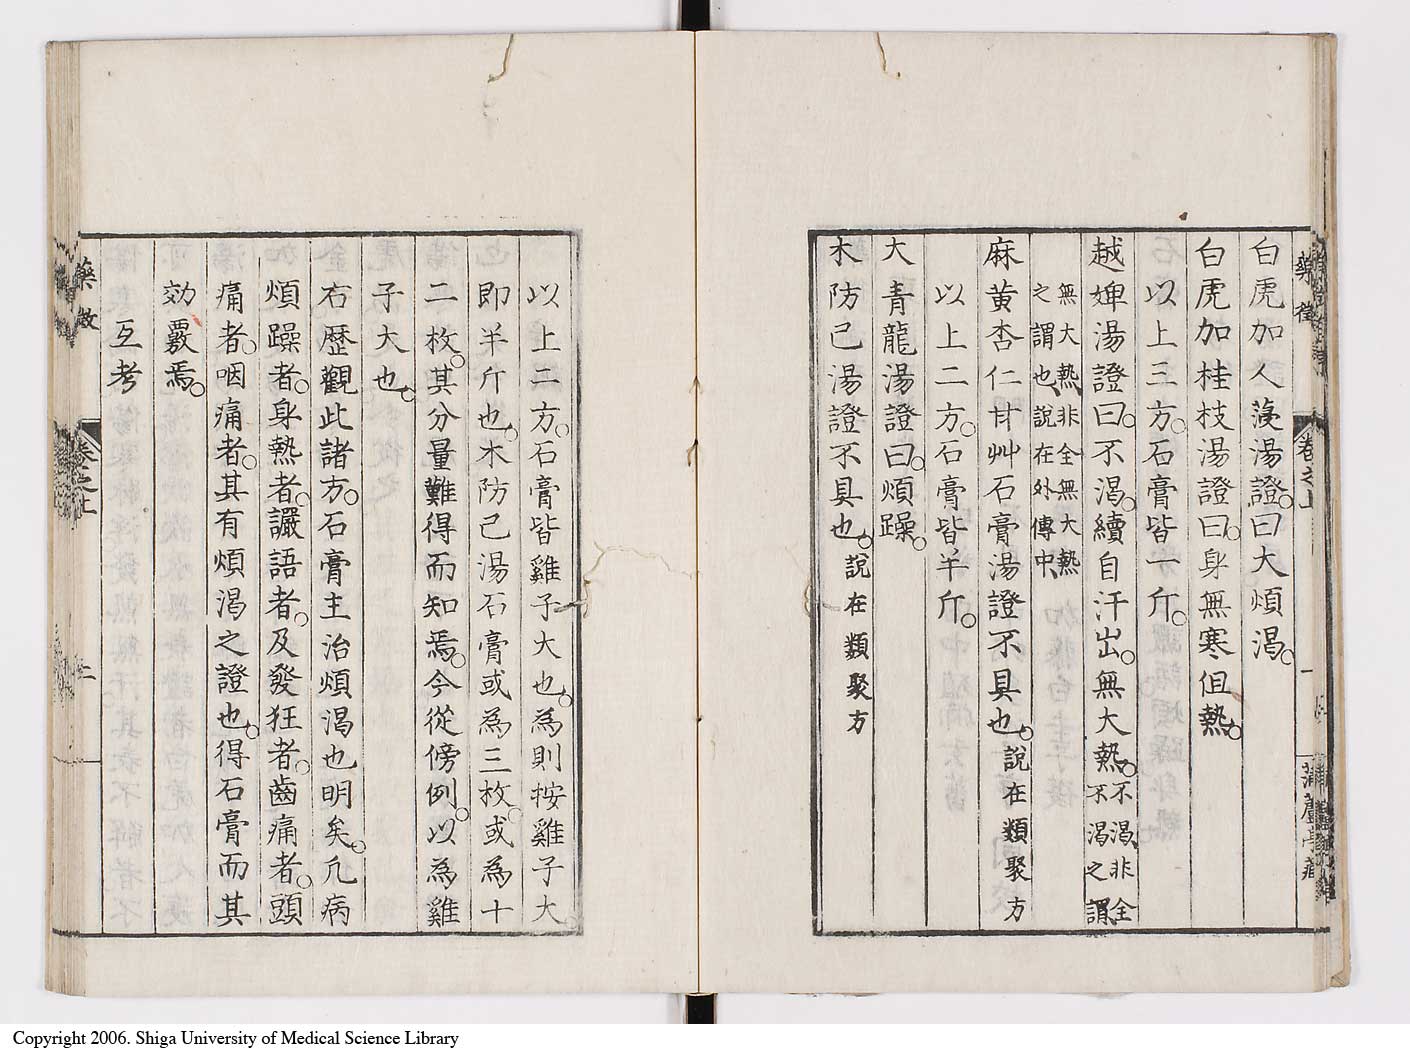 藥徵
卷之上
一
白虎加人薓湯證曰大煩渴。
白虎加桂枝湯證曰身無寒但熱。
以上三方。石膏皆一斤。
越婢湯證曰。不渴。續自汗出。無大熱。不渴、非全不渴之謂
無大熱、非全無大熱之謂也、說在外傳中、
麻黃杏仁甘艸石膏湯證不具也。說在類聚方
以上二方。石膏皆半斤。
大青龍湯證曰。煩躁。
木防己湯證不具也。說在類聚方
以上二方。石膏皆雞子大也。為則按雞子大。
即半斤也。木防己湯石膏或為三枚。或為十
二枚。其分量難得而知焉。今從傍例。以為雞
子大也。
右歷觀此諸方。石膏主治煩渴也明矣。凡病
煩躁者。身熱者。讝語者。及發狂者。齒痛者。頭
痛者。咽痛者。其有煩渴之證也。得石膏而其
効覈焉。
互考
藥徵
卷之上
Copyright 2006. Shiga University of Medical Science Library